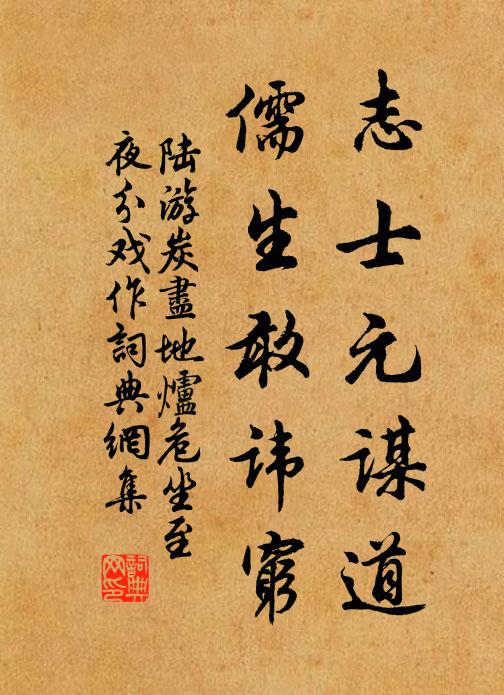 志士元谋道
儒生敢讳窮
陆游炭盡地爐危坐至
夜分戏作詞典網集
詞典网印